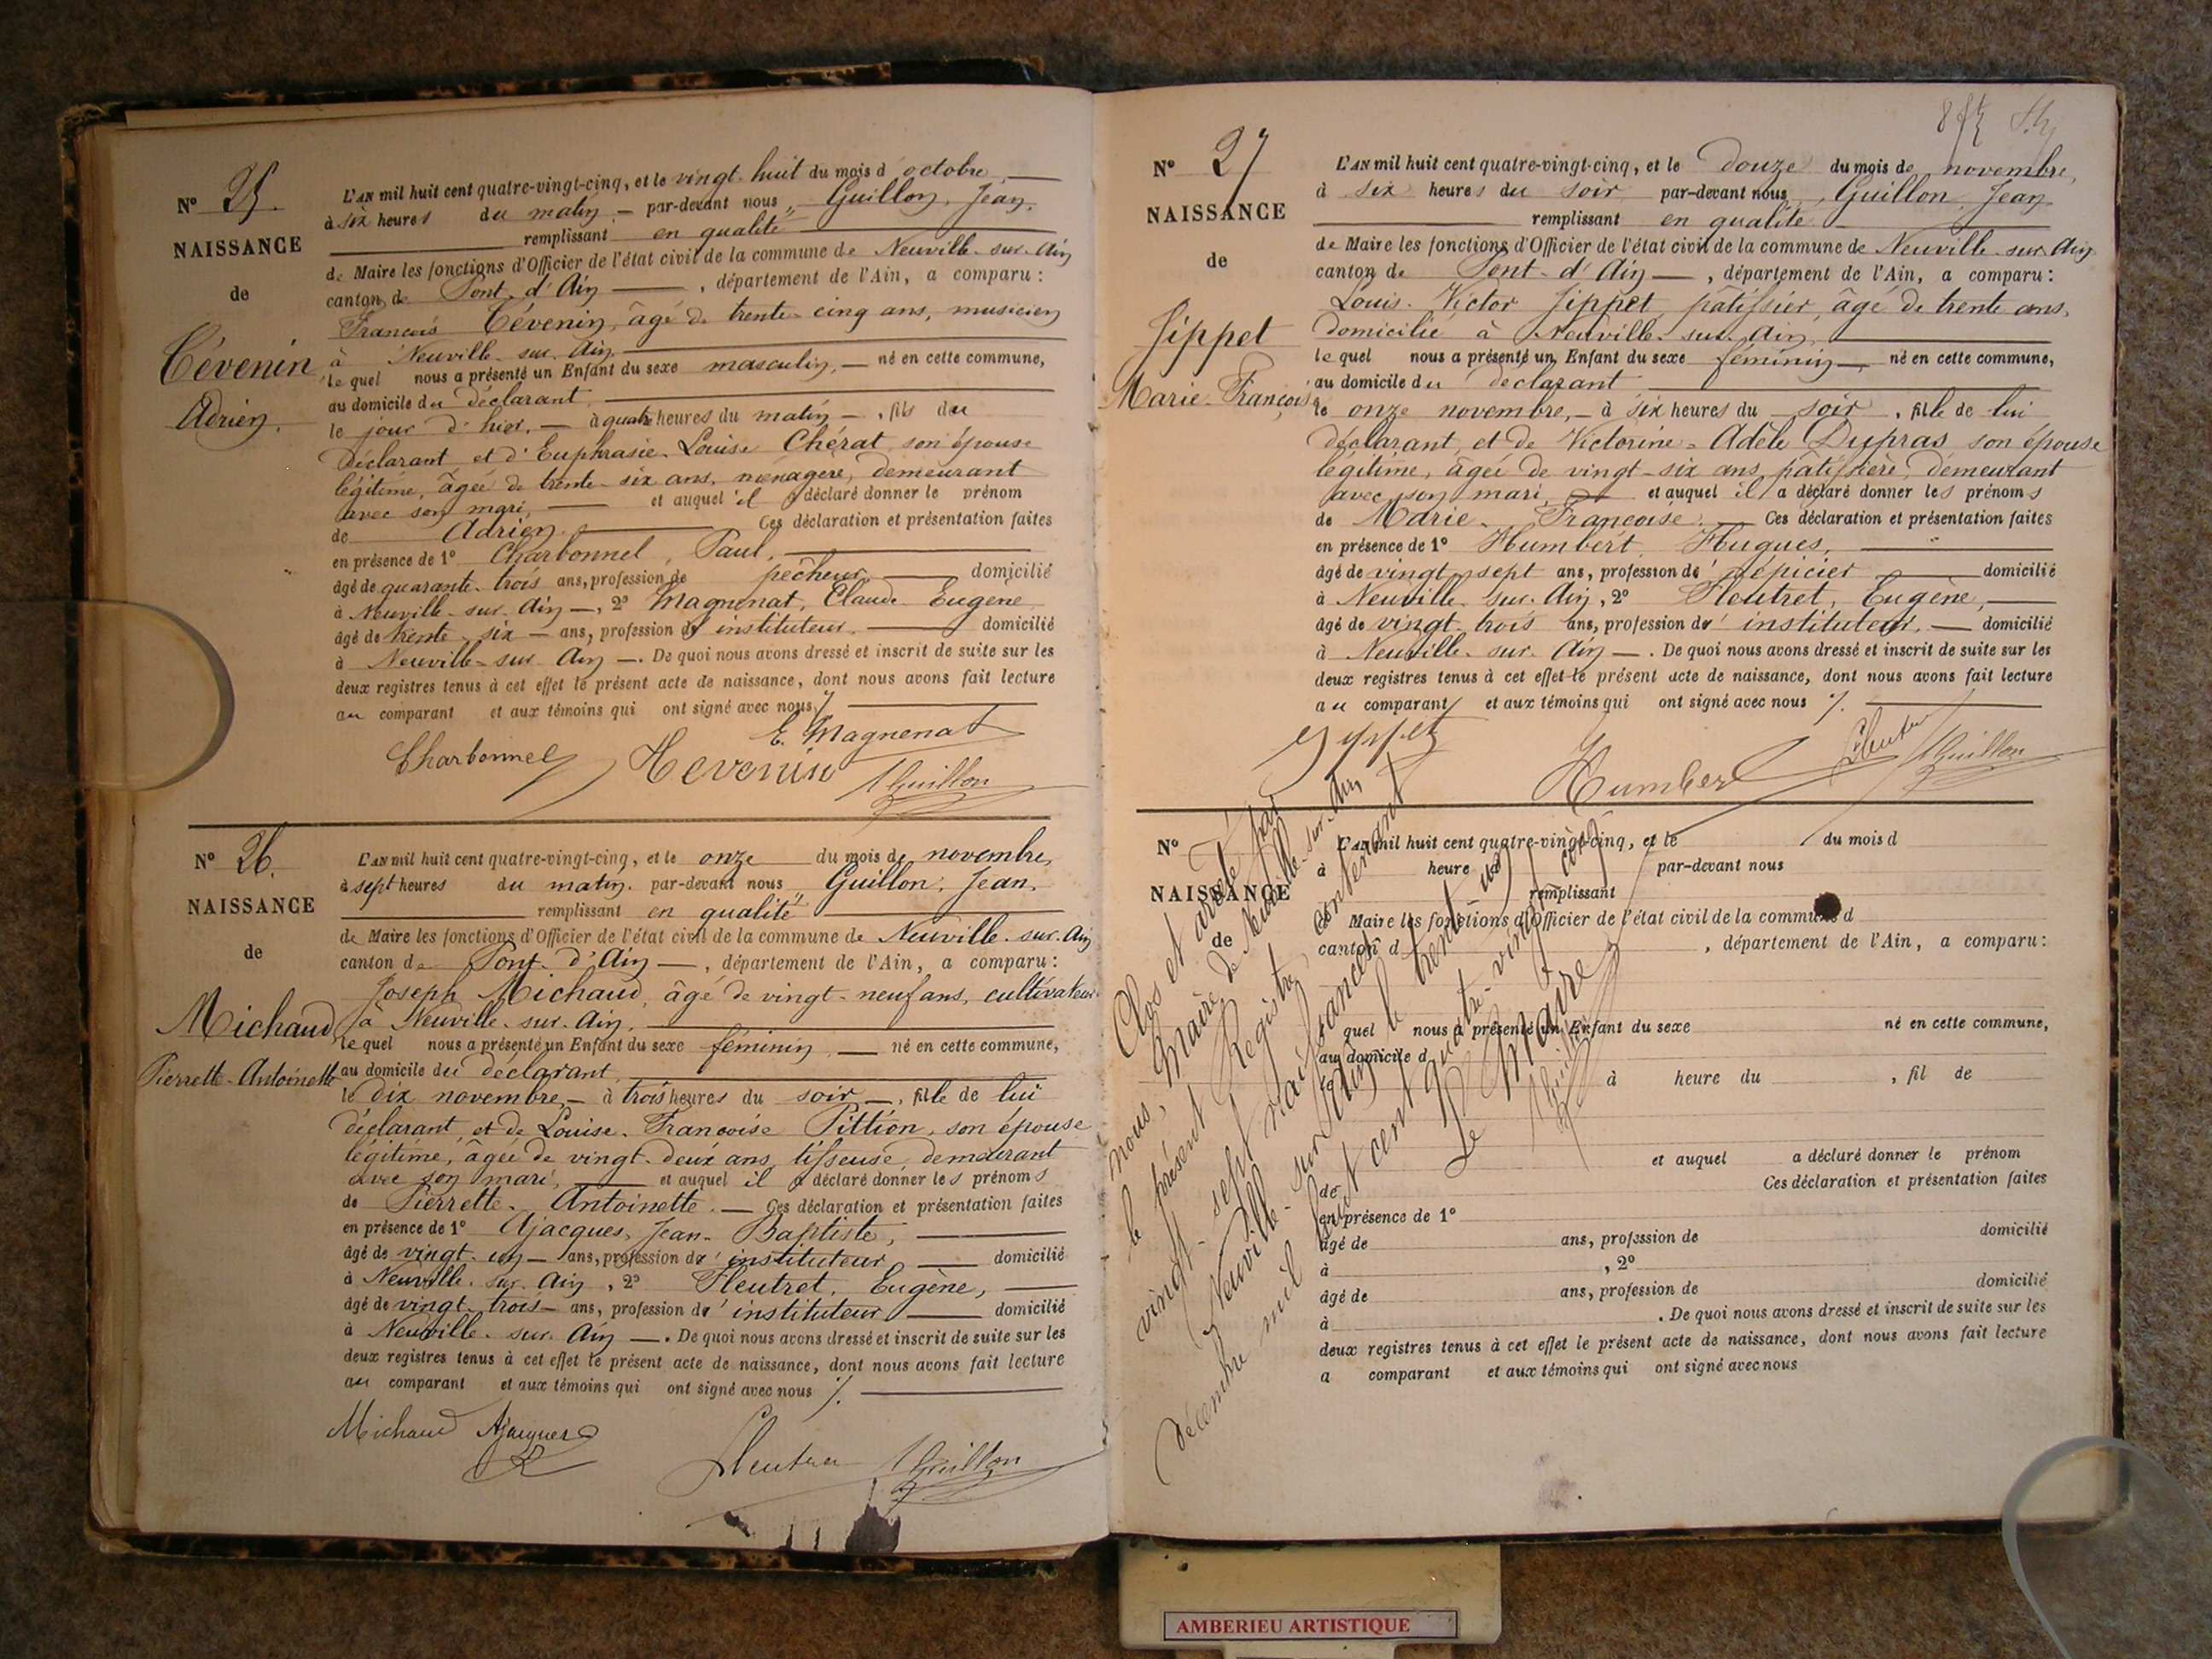 N° 25.
NAISSANCE
de
Tévenin
Adrien.
L'AN mil huit cent quatre-vingt-cinq, et le vingt-huit du mois d'octobre,
à six heures du matin, par-devant nous, Guillon, Jean,
remplissant en qualité
de Maire les fonctions d'Officier de l'état civil de la commune de Neuville-sur-Ain
canton de Pont-d'Ain, département de l'Ain, a comparu:
François Tévenin, âgé de trente-cinq ans, musicien
à Neuville-sur-Ain,
lequel nous a présenté un Enfant du sexe masculin, né en cette commune,
au domicile du déclarant,
le jour d'hier, à quatre heures du matin, fils du
déclarant et d'Euphrasie-Louise Chérat son épouse
légitime, âgée de trente-six ans, ménagère, demeurant
avec son mari, et auquel il a déclaré donner le prénom
de Adrien. Ces déclaration et présentation faites
en présence de 1° Charbonnel, Paul,
âgé de quarante-trois ans, profession de pêcheur, domicilié
à Neuville-sur-Ain, 2° Magnenat, Claude Eugène
âgé de trente-six ans, profession d'instituteur, domicilié
à Neuville-sur-Ain. De quoi nous avons dressé et inscrit de suite sur les
deux registres tenus à cet effet le présent acte de naissance, dont nous avons fait lecture
au comparant et aux témoins qui ont signé avec nous
E. Magnenat
Charbonnel Tevenin Guillon
N° 26.
NAISSANCE
de
Michaud
Pierrette-Antoinette
L'AN mil huit cent quatre-vingt-cinq, et le onze du mois de novembre,
à sept heures du matin, par-devant nous, Guillon, Jean,
remplissant en qualité
de Maire les fonctions d'Officier de l'état civil de la commune de Neuville-sur-Ain
canton de Pont-d'Ain, département de l'Ain, a comparu:
Joseph Michaud, âgé de vingt-neuf ans, cultivateur
à Neuville-sur-Ain,
lequel nous a présenté un Enfant du sexe féminin, né en cette commune,
au domicile du déclarant,
le dix novembre, à trois heures du soir, fille de lui
déclarant et de Louise-Françoise Pittion, son épouse
légitime, âgée de vingt-deux ans, tisseuse, demeurant
avec son mari, et auquel il a déclaré donner les prénoms
de Pierrette-Antoinette. Ces déclaration et présentation faites
en présence de 1° Ajacques, Jean-Baptiste,
âgé de vingt-un ans, profession d'instituteur domicilié
à Neuville-sur-Ain, 2° Fleutret, Eugène,
âgé de vingt-trois ans, profession d'instituteur domicilié
à Neuville-sur-Ain. De quoi nous avons dressé et inscrit de suite sur les
deux registres tenus à cet effet le présent acte de naissance, dont nous avons fait lecture
au comparant et aux témoins qui ont signé avec nous
Michaud Ajacques
Fleutret Guillon
N° 27
NAISSANCE
de
Jippet
Marie-Françoise
L'AN mil huit cent quatre-vingt-cinq, et le douze du mois de novembre,
à six heures du soir par-devant nous, Guillon, Jean
remplissant en qualité
de Maire les fonctions d'Officier de l'état civil de la commune de Neuville-sur-Ain
canton de Pont-d'Ain, département de l'Ain, a comparu:
Louis-Victor Jippet, pâtissier, âgé de trente ans,
domicilié à Neuville-sur-Ain,
lequel nous a présenté un Enfant du sexe féminin, né en cette commune,
au domicile du déclarant
le onze novembre, à six heures du soir, fille de lui
déclarant, et de Victorine-Adèle Dupras son épouse
légitime, âgée de vingt-six ans, pâtissière, demeurant
avec son mari, et auquel il a déclaré donner les prénoms
de Marie-Françoise. Ces déclaration et présentation faites
en présence de 1° Humbert Hugues,
âgé de vingt-sept ans, profession d'épicier domicilié
à Neuville-sur-Ain, 2° Fleutret, Eugène,
âgé de vingt-trois ans, profession d'instituteur, domicilié
à Neuville-sur-Ain. De quoi nous avons dressé et inscrit de suite sur les
deux registres tenus à cet effet le présent acte de naissance, dont nous avons fait lecture
au comparant et aux témoins qui ont signé avec nous
Jippet Humbert Fleutret Guillon
N°
NAISSANCE
de
L'AN mil huit cent quatre-vingt-cinq, et le du mois d
à heure par-devant nous
remplissant
Maire les fonctions d'Officier de l'état civil de la commune d
canton d , département de l'Ain, a comparu:
quel nous a présenté un Enfant du sexe né en cette commune,
au domicile d
le à heure du , fil de
et auquel a déclaré donner le prénom
de Ces déclaration et présentation faites
en présence de 1°
âgé de ans, profession de domicilié
à , 2°
âgé de ans, profession de domicilié
à . De quoi nous avons dressé et inscrit de suite sur les
deux registres tenus à cet effet le présent acte de naissance, dont nous avons fait lecture
a comparant et aux témoins qui ont signé avec nous
Clos et arrêté par
nous, Maire de Neuville-sur-Ain,
le présent Registre, contenant
vingt-sept naissances.
Neuville-sur-Ain, le trente un
décembre mil huit cent quatre-vingt cinq
Le Maire
Guillon
AMBERIEU ARTISTIQUE